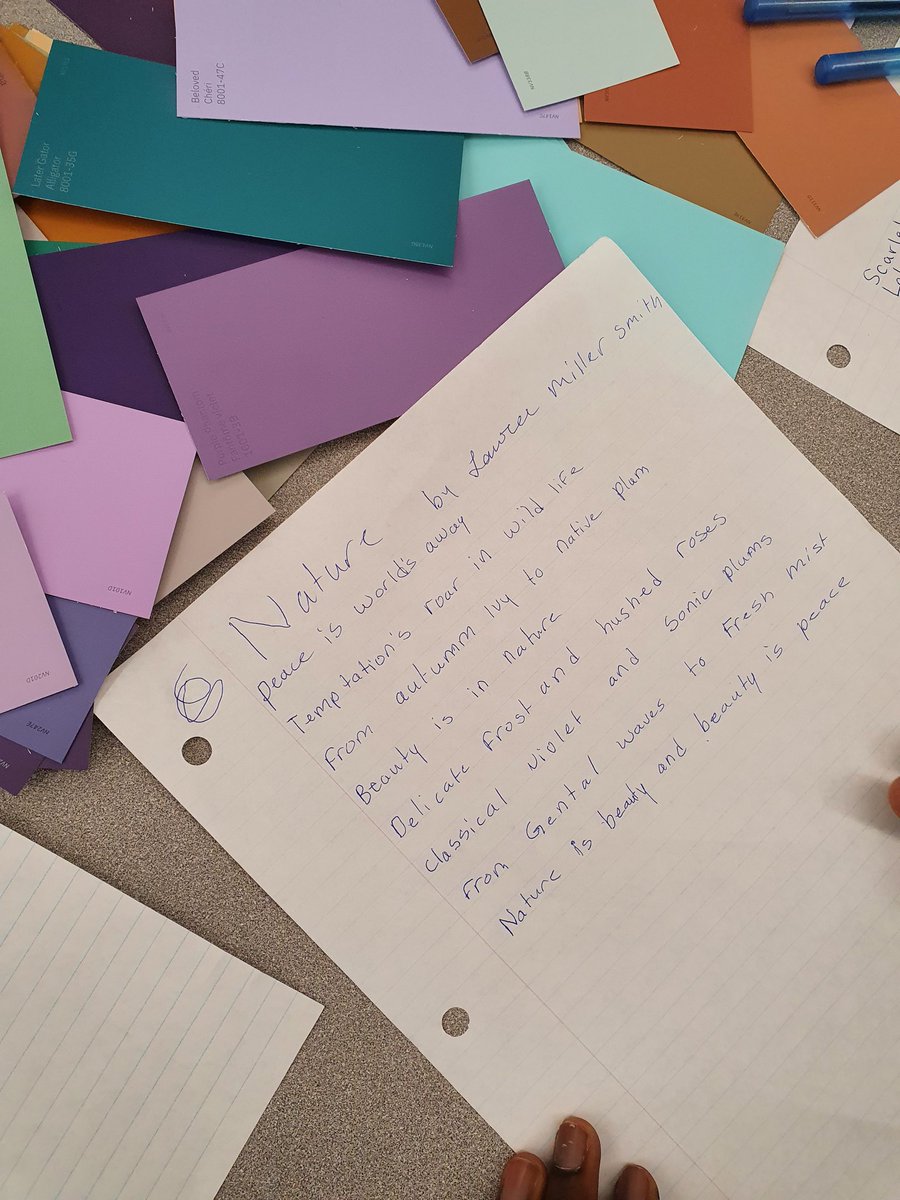 Beloved
Chéri
8001-47C
Later Gator
Alligator
8001-35G
NV101D
NV201D
NV247E
Scarlet
Nature by Lauree Miller Smith
peace is world's away
Temptation's roar in wild life
From autumn Ivy to native plum
Beauty is in nature
Delicate Frost and hushed roses
classical violet and sonic plums
From Gental waves to Fresh mist
Nature is beauty and beauty is peace